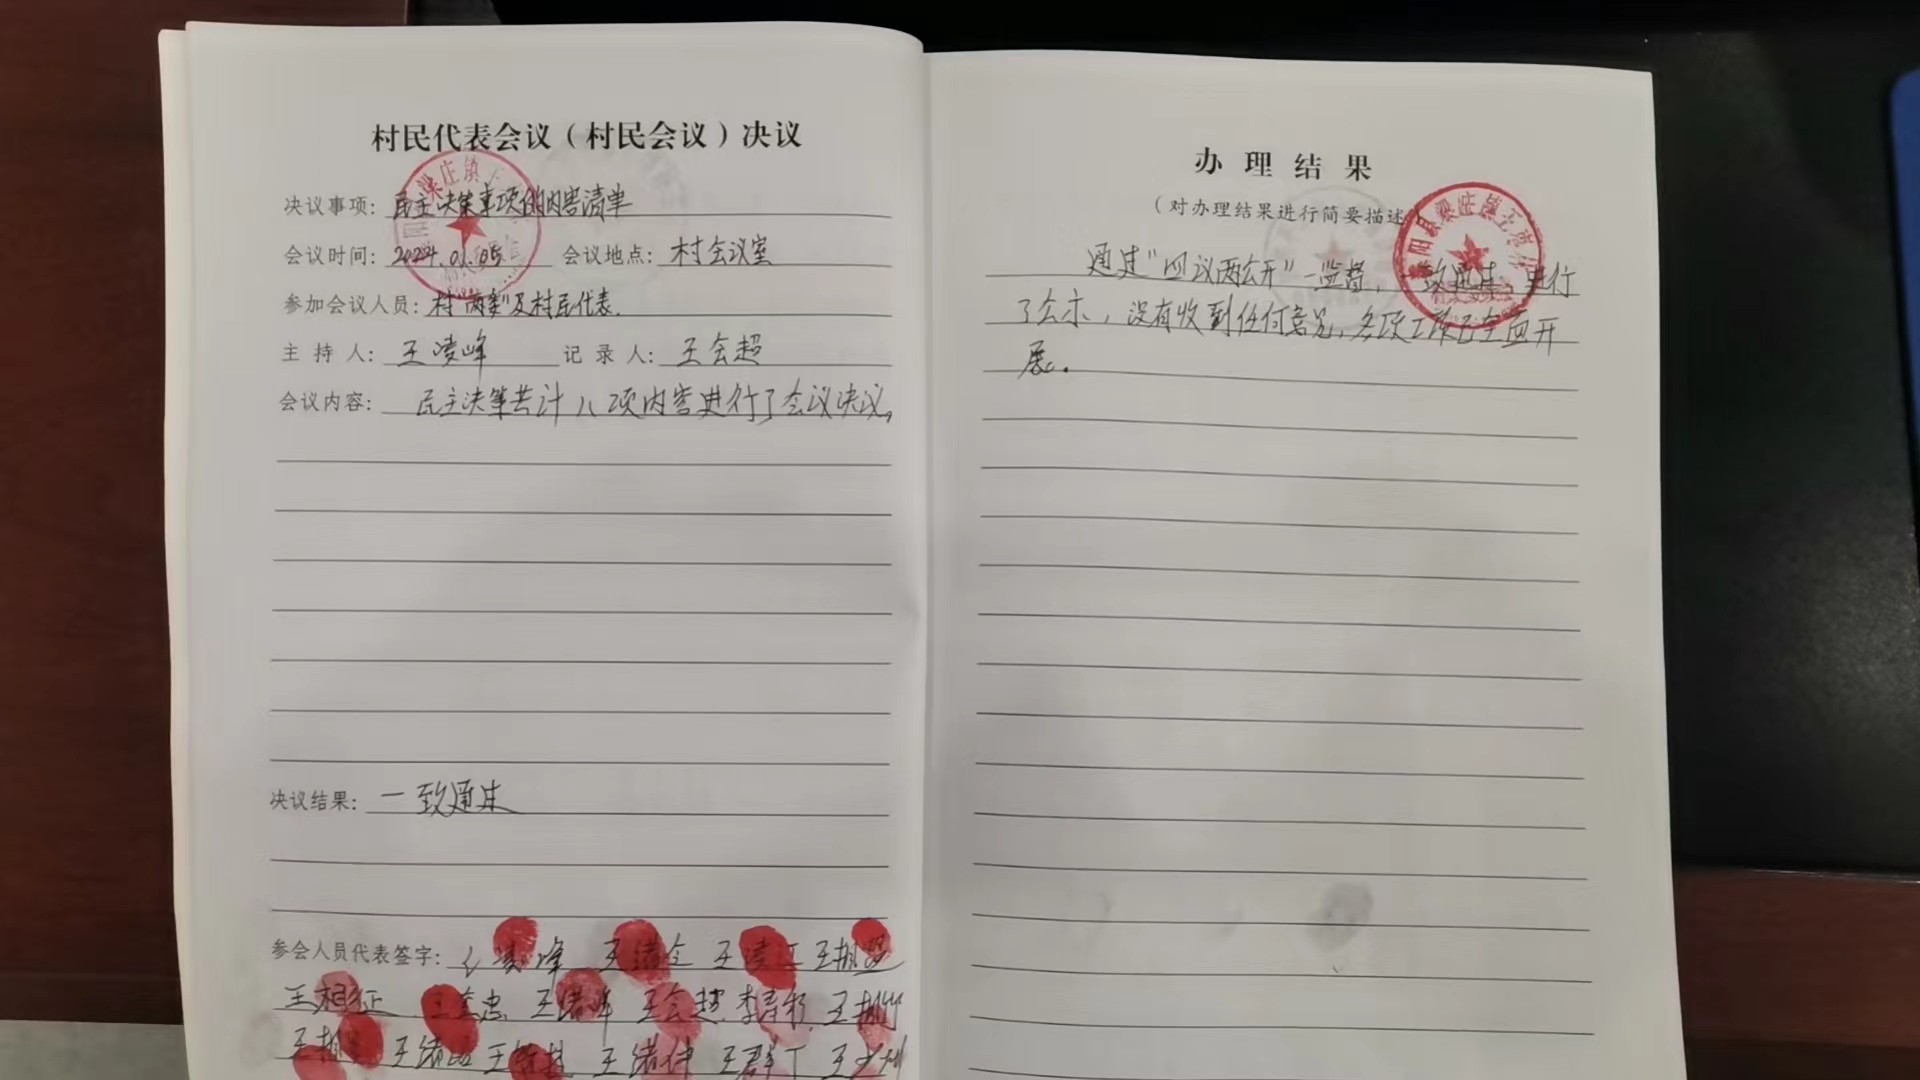 村民代表会议（村民会议）决议
决议事项：民主决策事项的内容清单
会议时间：2024.01.05 会议地点：村会议室
参加会议人员：村"两委"及村民代表.
主持人：王凌峰 记录人：王会超
会议内容：民主决策共计八项内容进行了会议决议。
决议结果：一致通过
参会人员代表签字：凌峰 王绪全 王凌江
王相征 王金忠 王绪峰 王会超
王绪 王 王绪 王群丁 王
办理结果
（对办理结果进行简要描述）
通过"四议两公开"一监督，一致通过，进行
了公示，没有收到任何意见，各项工作已全面开
展。
梁庄镇
阳县梁庄镇王